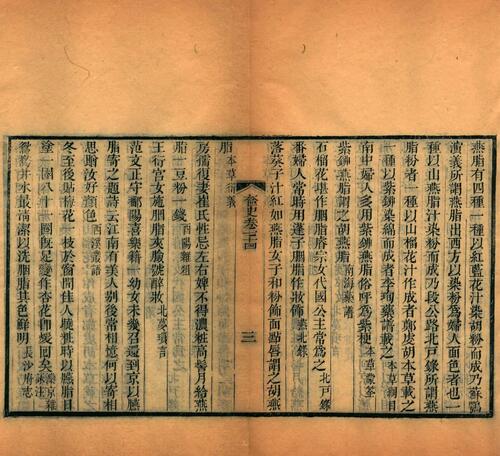 燕脂有四種一種以紅藍花汁染粉而成乃蘇鶚
演義所謂燕脂出西方以染粉為婦人面色者也一
種以山燕脂汁染粉而成乃段公路北戸錄所謂燕
脂粉者一種以山榴花汁作成者鄭虔胡本草載之
一種以紫鉚染綿而成者李珣南海藥譜載之 本草綱目
南中婦人多用紫鉚燕脂俗呼為紫梗 本草蒙筌
紫鉚燕脂謂之胡燕脂 南海藥譜
石榴花堪作胭脂睿宗女代國公主常為之 北戸錄
番婦人常時用蓬子胭脂作妝飾 燕北錄
落葵子汁紅如燕脂女子和粉飾面點唇謂之胡燕
奩史卷三十四
三
脂 本草衍義
房孺復妻崔氏性忌左右婢不得濃粧高髻月給燕
脂一豆粉一錢 酉陽雜俎
王衍宮女施胭脂夾臉號醉妝 北夢瑣言
范文正守鄱陽喜樂籍一幼女未幾召還到京以燕
脂寄之題詩云江南有美人別後常相憶何以寄相
思贈汝好顏色 西溪叢語
冬至後貼梅花一枝於窗間佳人曉粧時以臙脂日
塗一圈八十一圈旣足變作杏花卽
鴛鴦井水最清潔以洗胭脂其色鮮明 長沙府志